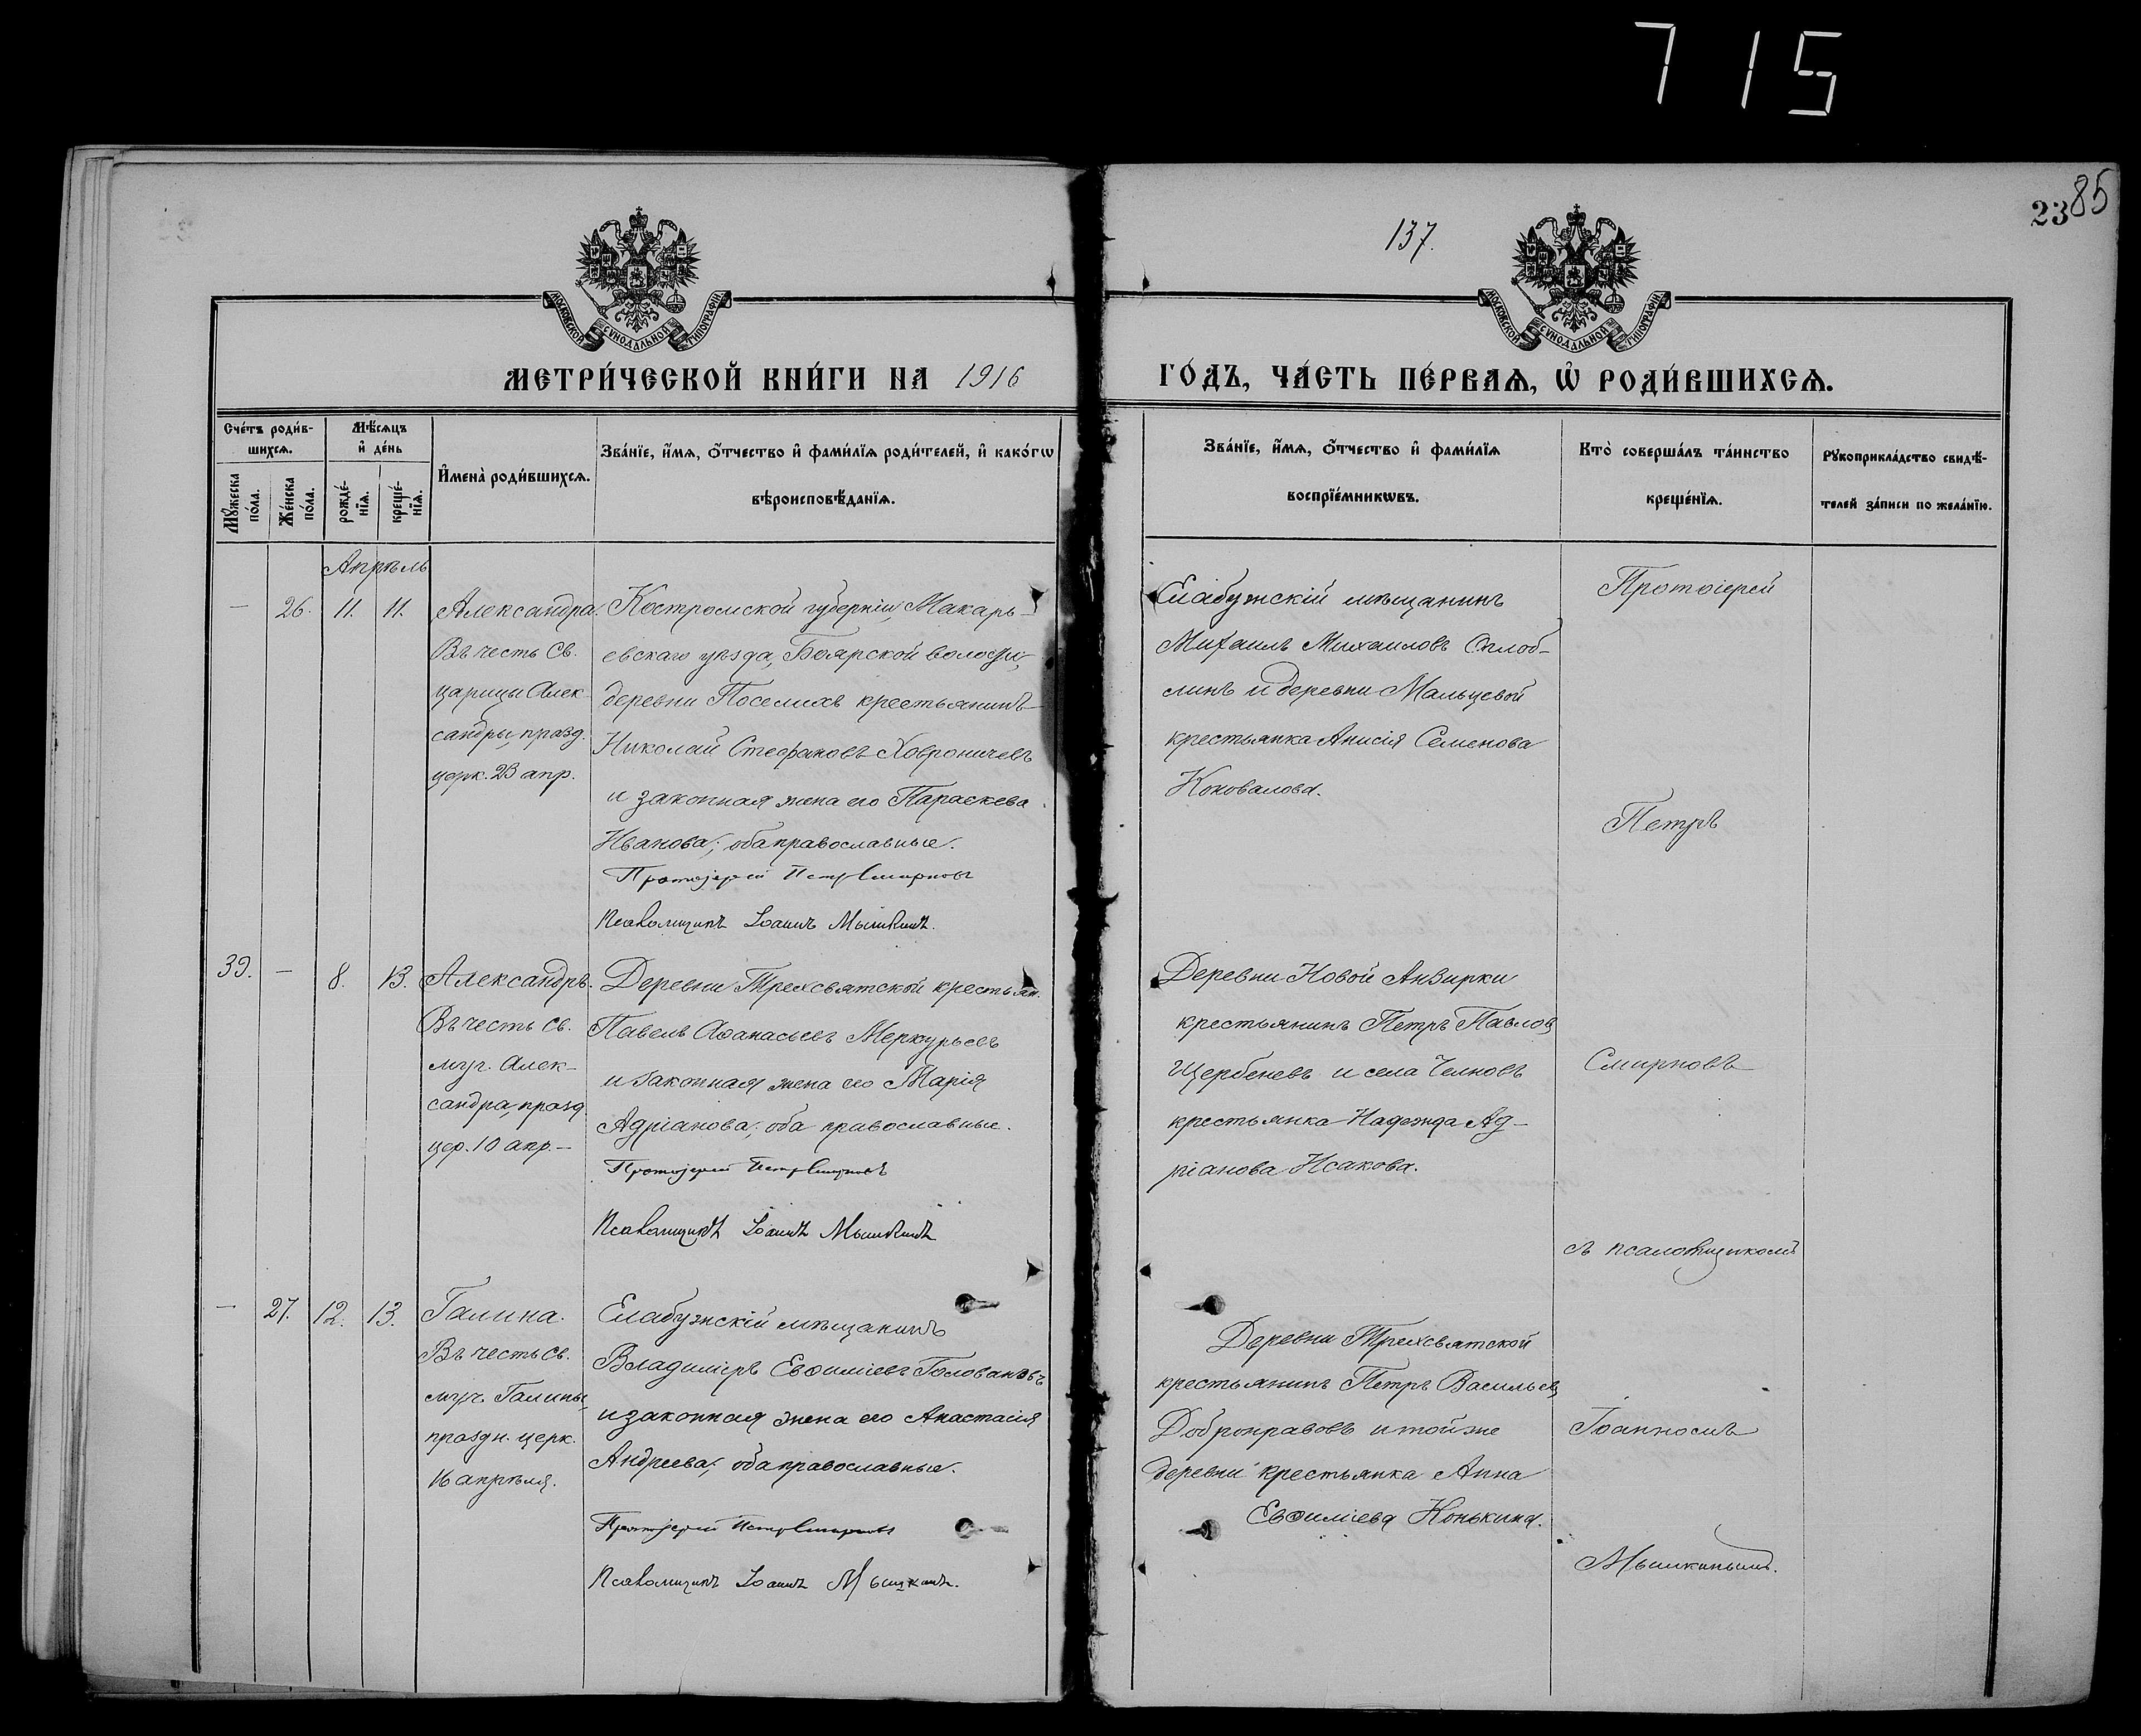 715
2385
137.
МОСКОВСКОЙ СУНОДАЛЬНОЙ ТИПОГРАФІИ
МОСКОВСКОЙ СУНОДАЛЬНОЙ ТИПОГРАФІИ
МЕТРИ́ЧЕСКОЙ КНИ́ГИ НА 1916
ГО́ДЪ, ЧА́СТЬ ПЕ́РВАѦ, Ѽ РОДИ́ВШИХСѦ.
Сче́тъ роди́в-
шихсѧ.
Мꙋ́жеска по́ла.
Же́нска по́ла.
Мѣ́сѧцъ
и҆ де́нь
рожде́-
нїѧ.
креще́-
нїѧ.
И҆мена̀ роди́вшихсѧ.
Зва́нїе, и҆́мѧ, ѻ҆́тчество и҆ фами́лїѧ роди́телей, и҆ како́гѡ
вѣроисповѣ́данїѧ.
Зва́нїе, и҆́мѧ, ѻ҆́тчество и҆ фами́лїѧ
воспрїе́мникѡвъ.
Кто̀ соверша́лъ та́инство
креще́нїѧ.
Рꙋкоприкла́дство свидѣ́-
телей за́писи по жела́нїю.
Апрѣль
— 26. 11. 11.
Александра.
Въ честь Св.
царицы Алек-
сандры, празд.
церк. 23 апр.
Костромской губерніи, Макарь-
евскаго уѣзда, Боярской волости,
деревни крестьянинъ
Николай Стефановъ
и законная жена его Параскева
Иванова; оба православные.
Протоіерей Петръ Смирновъ
Псаломщикъ Іоаннъ Мышкинъ.
Елабужскій мѣщанинъ
Михаилъ Михаиловъ
и деревни Мальцевой
крестьянка Анисія Семенова
Коновалова.
Протоіерей
Петръ
Смирновъ
съ псаломщикомъ
Іоанномъ
Мышкинымъ.
39. — 8. 13.
Александръ.
Въ честь св.
муч. Алек-
сандра, празд.
цер. 10 апр.—
Деревни Трехсвятской крестьян.
Павелъ Аѳанасьевъ Меркурьевъ
и законная жена его Марія
Адріанова; оба православные.
Протоіерей Петръ Смирновъ
Псаломщикъ Іоаннъ Мышкинъ
Деревни Новой Анзирки
крестьянинъ Петръ Павлов
Щербеневъ и села Челновъ
крестьянка Надежда Ад-
ріанова Исакова.
— 27. 12. 13.
Галина.
Въ честь св.
муч. Галины,
праздн. церк.
16 апрѣля.
Елабужскій мѣщанинъ
Владиміръ Евѳиміевъ Головановъ
и законная жена его Анастасія
Андреева; оба православные.
Протоіерей Петръ Смирновъ
Псаломщикъ Іоаннъ Мышкинъ.
Деревни Трехсвятской
крестьянинъ Петръ Васильев
Добронравовъ и той же
деревни крестьянка Анна
Евѳиміева Конькина.